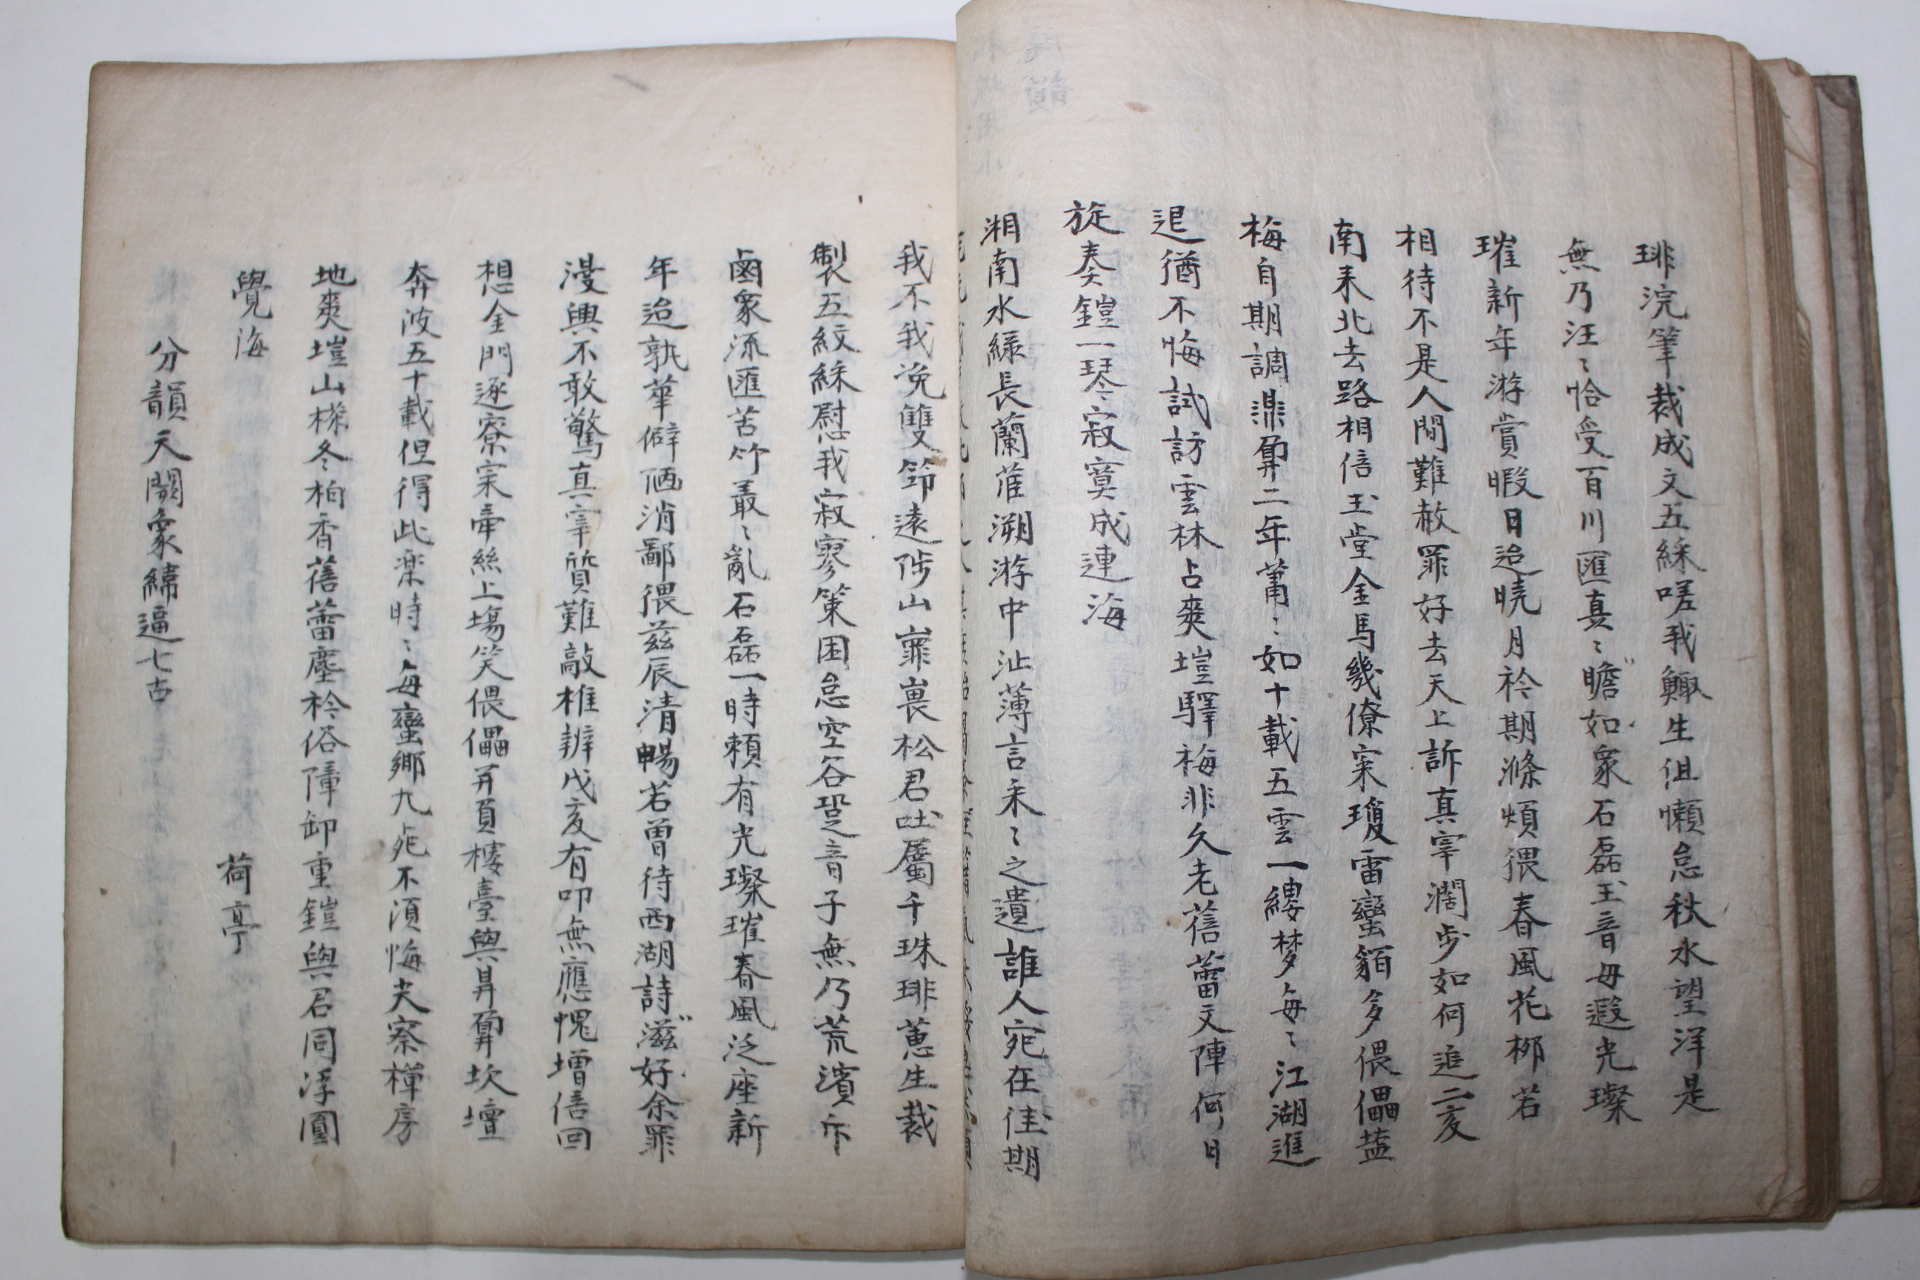 琲浣筆裁成文五綵嗟我鯫生伹懶怠秋水望洋是
無乃汪〻恰受百川匯真〻瞻如象石磊玉音毋遐光璨
璀新年游賞暇日迨曉月衿期滌煩猥春風花柳若
相待不是人間難赦罪好去天上訴真宰濶步如何追二亥
南来北去路相信玉堂金馬幾僚寀瓊雷蠻貊多偎儡盐
梅自期調鼎鼐二年萧〻如十載五雲一縷梦每〻江湖進
退猶不悔試訪雲林占爽塏驛梅非久老蓓蕾文陣何日
旋奏鎧一琴寂寞成連海
湘南水緑長蘭茝溯游中沚薄言采〻之遺誰人宛在佳期
我不我浼雙笻遠陟山嶵嵔松君吐屬千珠琲蕙生裁
製五紋綵慰我寂寥策困怠空谷跫音子無乃荒濱斥
鹵象流匯苦竹叢〻亂石磊一時頼有光璨璀春風泛座新
年迨孰華僻陋消鄙猥兹辰清暢若曽待西湖詩滋好余罪
漫興不敢驚真宰質難敲椎辨戊亥有叩無應愧增倍回
想金門逐寮寀牽絲上塲笑偎儡并頁樓臺與昇鼐坎壇
奔波五十載但得此楽時〻每蠻鄉九死不湏悔丈察樿房
地爽塏山樣冬柏香蓓蕾塵衿俗障卸重鎧與君同浮圓
覺海
荷亭
分韻天闕象緯逼七古